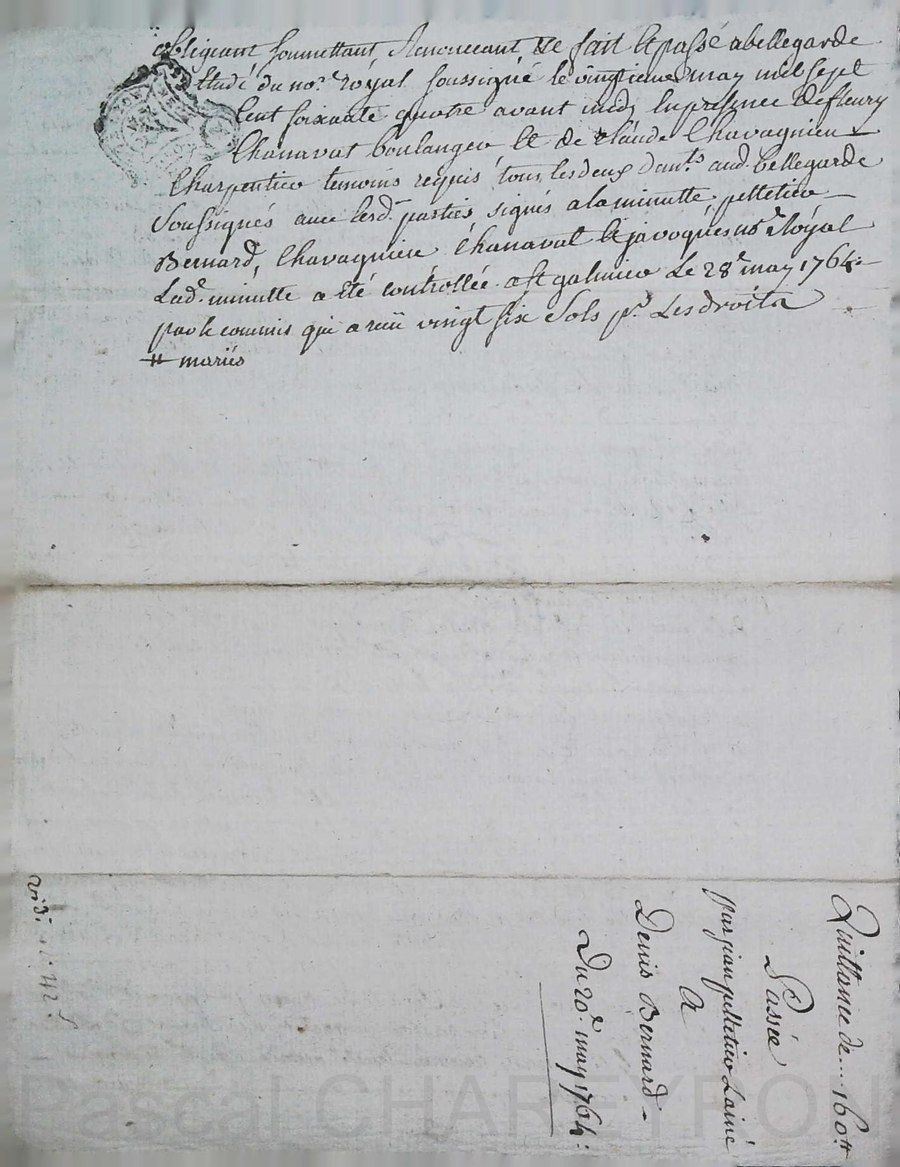 obligeant soumettant Renoncant &c fait & passé a bellegarde
Etude du no.re royal soussigné le vingtieme may mil sept
Cent soixante quatre avant midy En presence de fleury
Chanavat boulanger Et de Claude Chavagnieu
Charpentier temoins requis tous les deux dem.ts aud. bellegarde
soussignés avec lesd. parties signés a la minutte pelletier
Bernard, Chavagnieu Chanavat & javogues no.re Royal
Lad. minutte a été contrôllée a st galmier Le 28.e may 1764.
par le commis qui a recu vingt six sols p.r Les droits
# mariés
Quittance de ... 160.tt
Passée
par jean pelletier Lainé
A
Denis Bernard -
Du 20.e may 1764: